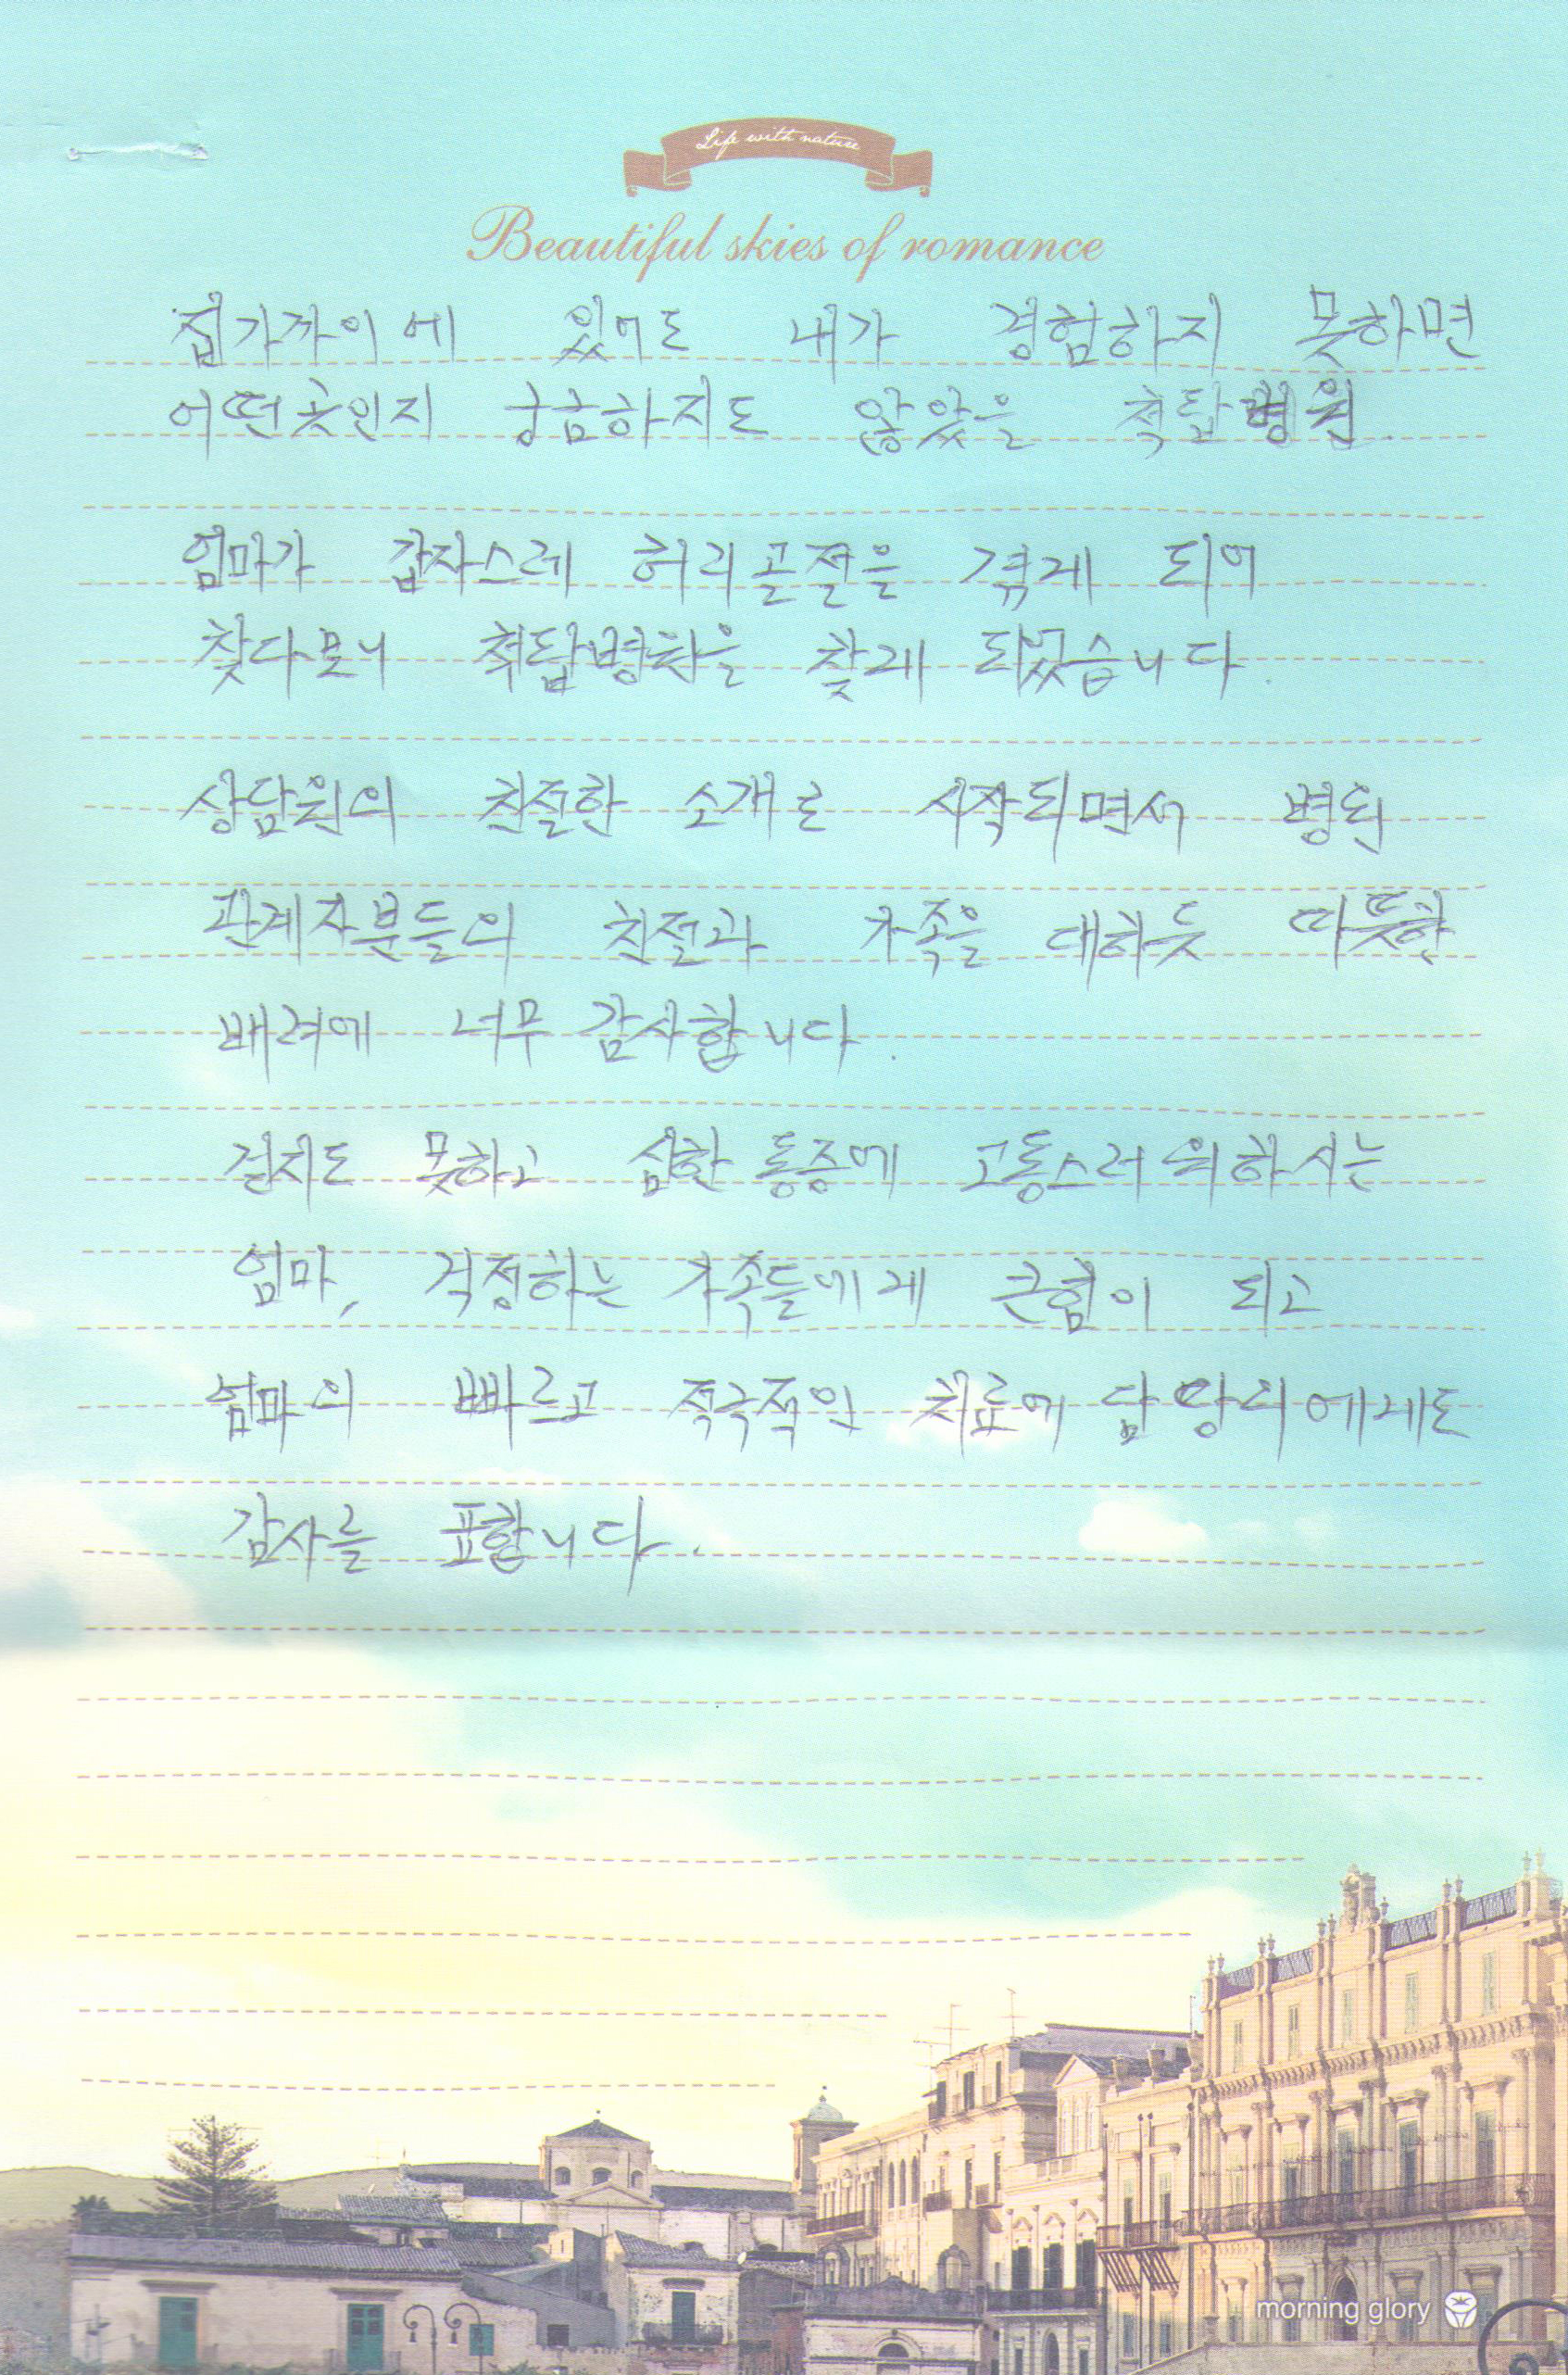 Life with nature
Beautiful skies of romance
집가까이에 있어도 내가 경험하지 못하면
어떤곳인지 궁금하지도 않았을 척탑병원.
엄마가 갑자스레 허리골절을 겪게 되어
찾다보니 척탑병원을 찾게 되었습니다.
상담원의 친절한 소개로 시작되면서 병원
관계자분들의 친절과 가족을 대하듯 따뜻한
배려에 너무 감사합니다.
걷지도 못하고 심한 통증에 고통스러워하시는
엄마, 걱정하는 가족들에게 큰힘이 되고
엄마의 빠르고 적극적인 치료에 담당의에게도
감사를 표합니다.
morning glory